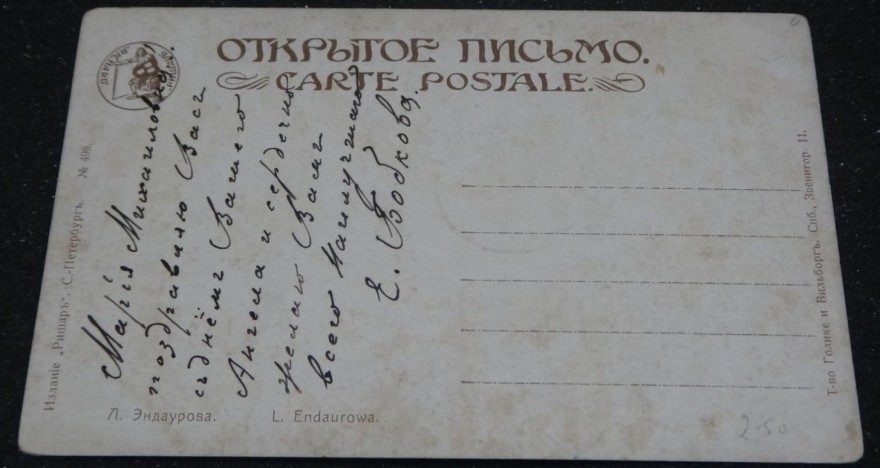 ОТКРЫТОЕ ПИСЬМО.
CARTE POSTALE.
Марія Михаиловна.
поздравляю Васъ
съ днёмъ Вашего
Ангела и сердечно
желаю Вамъ
всего Наилучшаго
Е. Бобкова.
Л. Эндаурова. L. Endaurowa.
Изданіе „Ришаръ“. С.-Петербургъ. № 498.
Т-во Голике и Вильборгъ. Спб., Звенигор. 11.
2-50